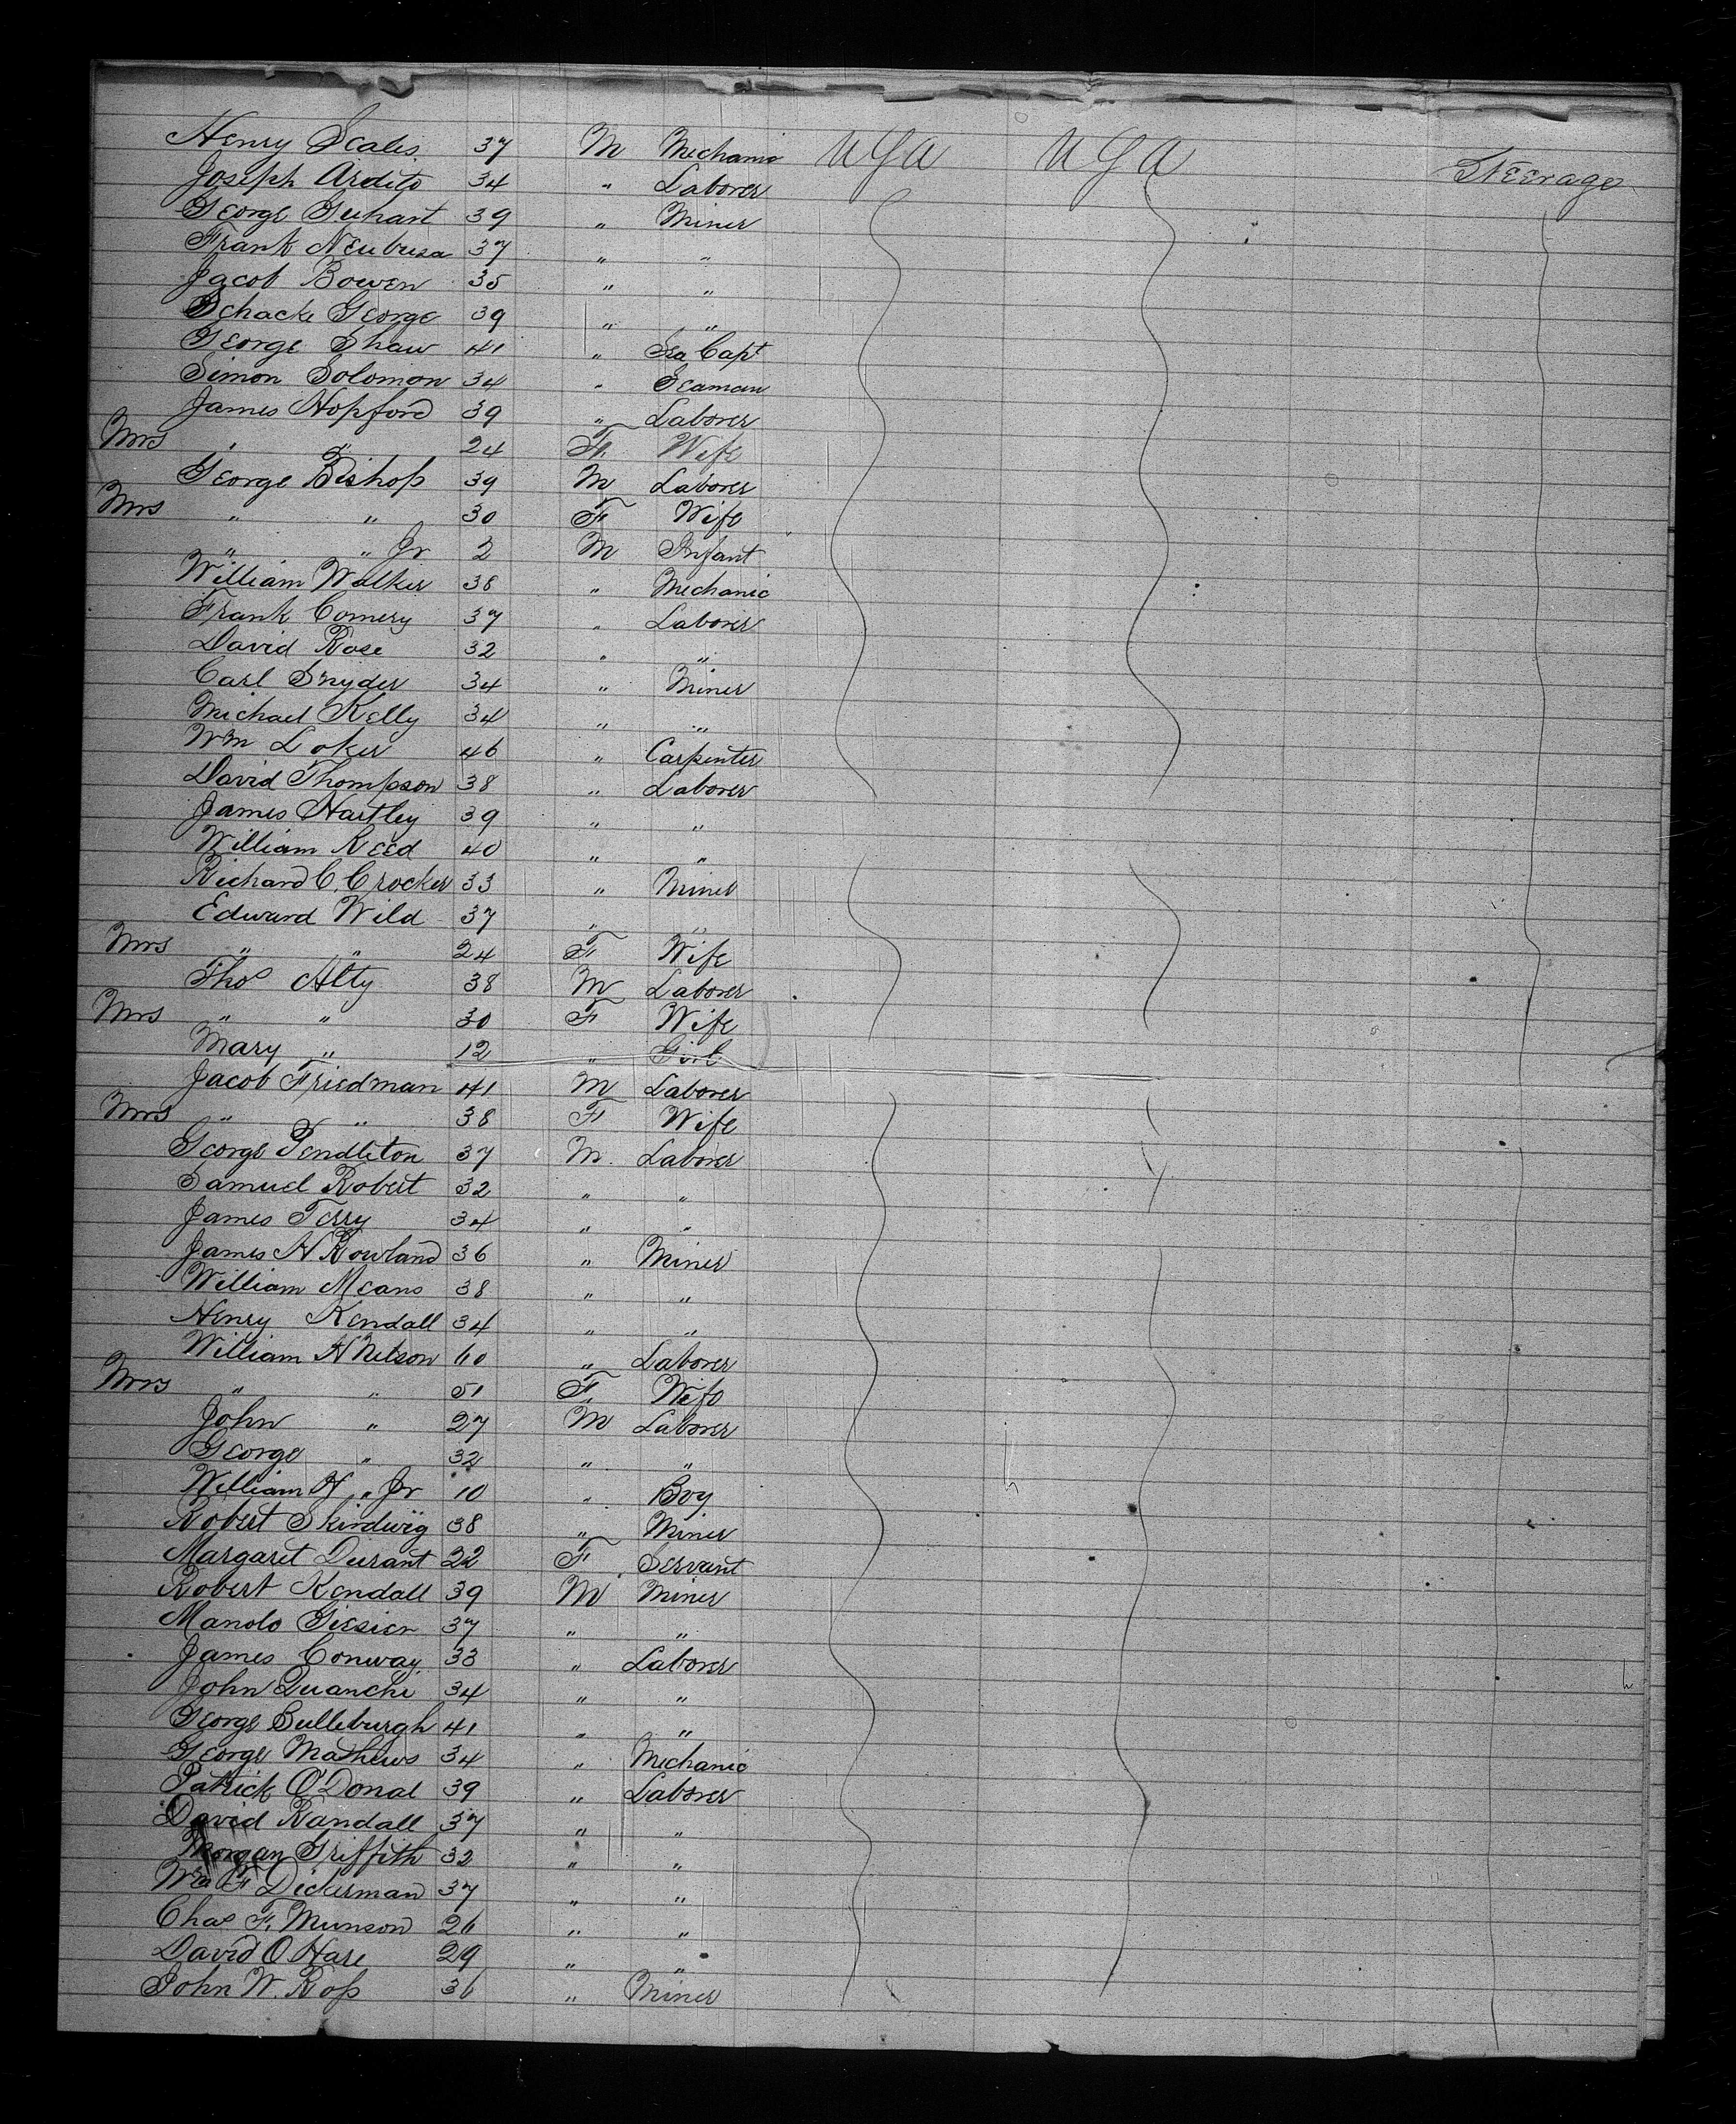 Henry Scales. 37 M Mechanic USA USA Steerage
Joseph Ardito 34 " Laborer
George Guhart 39 " Miner
Frank Neubusa 37 " "
Jacob Bowen 35 " "
Schacke George 39 " "
George Shaw 41 " Sea Capt
Simon Solomon 34 " Seaman
James Hopford 39 " Laborer
Mrs " " 24 F Wife
George Bishop 39 M Laborer
Mrs " " 30 F Wife
" " Jr 2 M Infant
William Walker 38 " Mechanic
Frank Comery 37 " Laborer
David Rose 32 " "
Carl Snyder 34 " Miner
Michael Kelly 34 " "
Wm Loker 46 " Carpenter
David Thompson 38 " Laborer
James Hartley 39 " "
William Reed 40 " "
Richard C. Crocker 33 " Miner
Edward Wild 37 " "
Mrs " " 24 F Wife
Thos Alty 38 M Laborer
Mrs " " 30 F Wife
Mary " 12 " Girl
Jacob Friedman 41 M Laborer
Mrs " " 38 F Wife
George Pendleton 37 M. Laborer
Samuel Robert 32 " "
James Terry 34 " "
James H Rowland 36 " Miner
William Means 38 " "
Henry Kendall 34 " "
William H Nelson 60 " Laborer
Mrs " " 51 F Wife
John " 27 M Laborer
George " 32 " "
William H " Jr 10 " Boy
Robert Skirdwig 38 " Miner
Margaret Durant 22 F Servant
Robert Kendall 39 M Miner
Manolo Giesier 37 " "
James Conway 33 " Laborer
John Quanchi 34 " "
George Bulleburgh 41 " "
George Mathews 34 " Mechanic
Patrick O'Donal 39 " Laborer
David Randall 37 " "
Morgan Griffith 32 " "
Wm F Dickerman 37 " "
Chas F. Munson 26 " "
David O Hare 29 " "
John W. Ross 36 " Miner